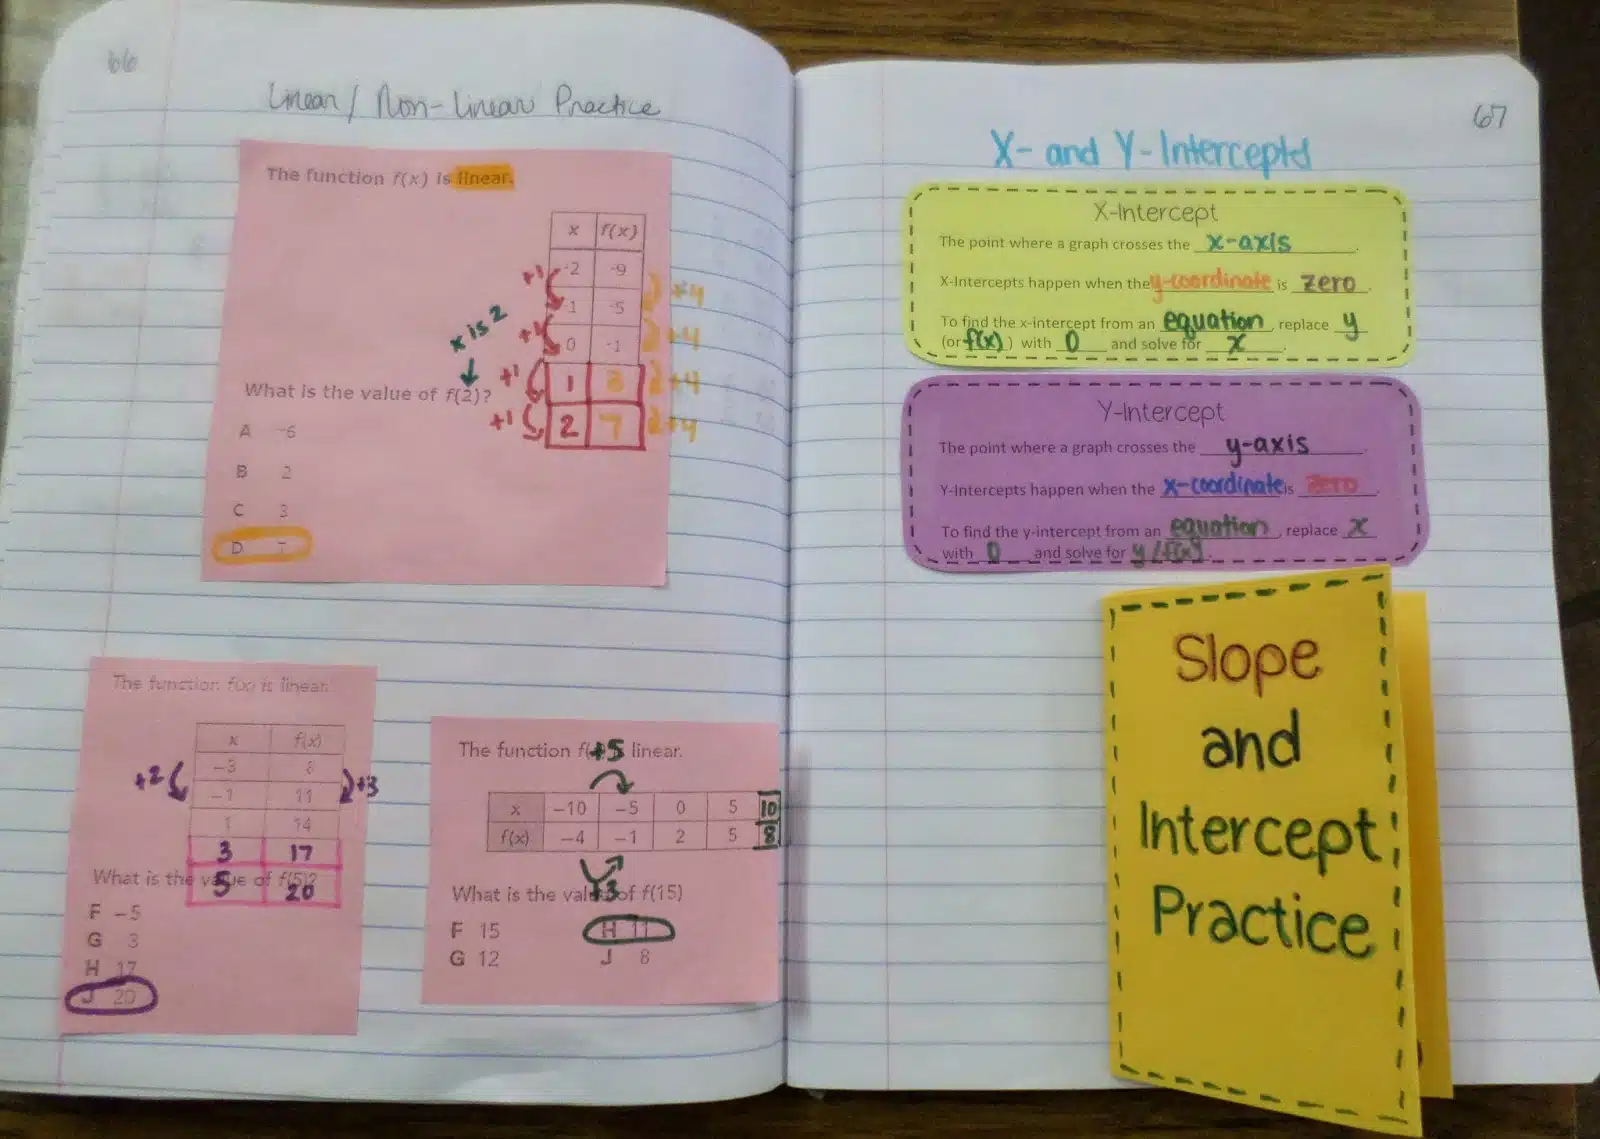 66
Linear / Non-Linear Practice
The function f(x) is linear.
x f(x)
-2 -9
-1 -5
0 -1
1 3
2 7
+1
+1
+1
+1
+4
+4
+4
+4
x is 2
What is the value of f(2)?
A -6
B 2
C 3
D 7
The function f(x) is linear.
x f(x)
-3 8
-1 11
1 14
3 17
5 20
+2
+3
What is the value of f(5)?
F -5
G 3
H 17
J 20
The function f( linear.
+5
x -10 -5 0 5 10
f(x) -4 -1 2 5 8
+3
What is the value of f(15)
F 15
G 12
H 11
J 8
67
X- and Y-Intercepts
X-Intercept
The point where a graph crosses the x-axis.
X-Intercepts happen when the y-coordinate is zero.
To find the x-intercept from an equation, replace y
(or f(x)) with 0 and solve for x.
Y-Intercept
The point where a graph crosses the y-axis.
Y-Intercepts happen when the x-coordinate is zero.
To find the y-intercept from an equation, replace x
with 0 and solve for y / f(x).
Slope
and
Intercept
Practice